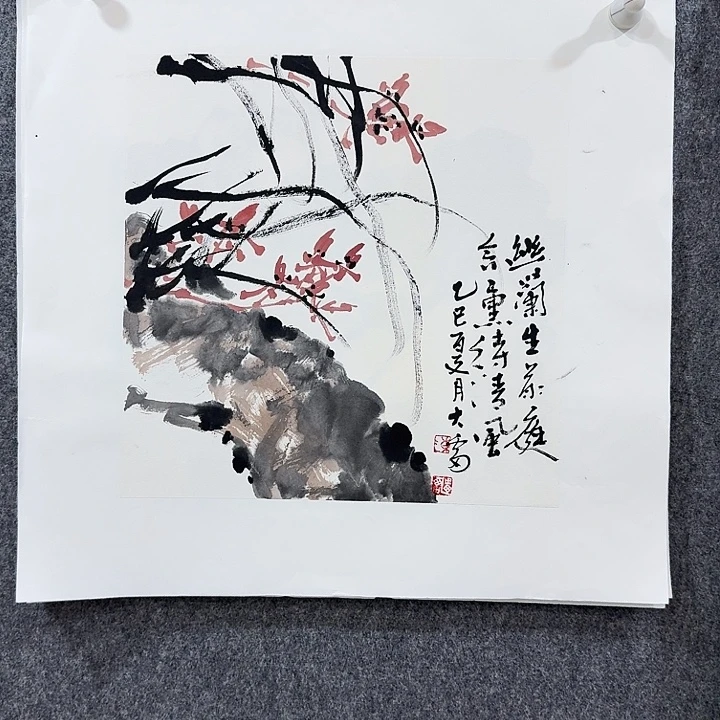 幽蘭生前庭
含薰待清風
乙巳夏月大